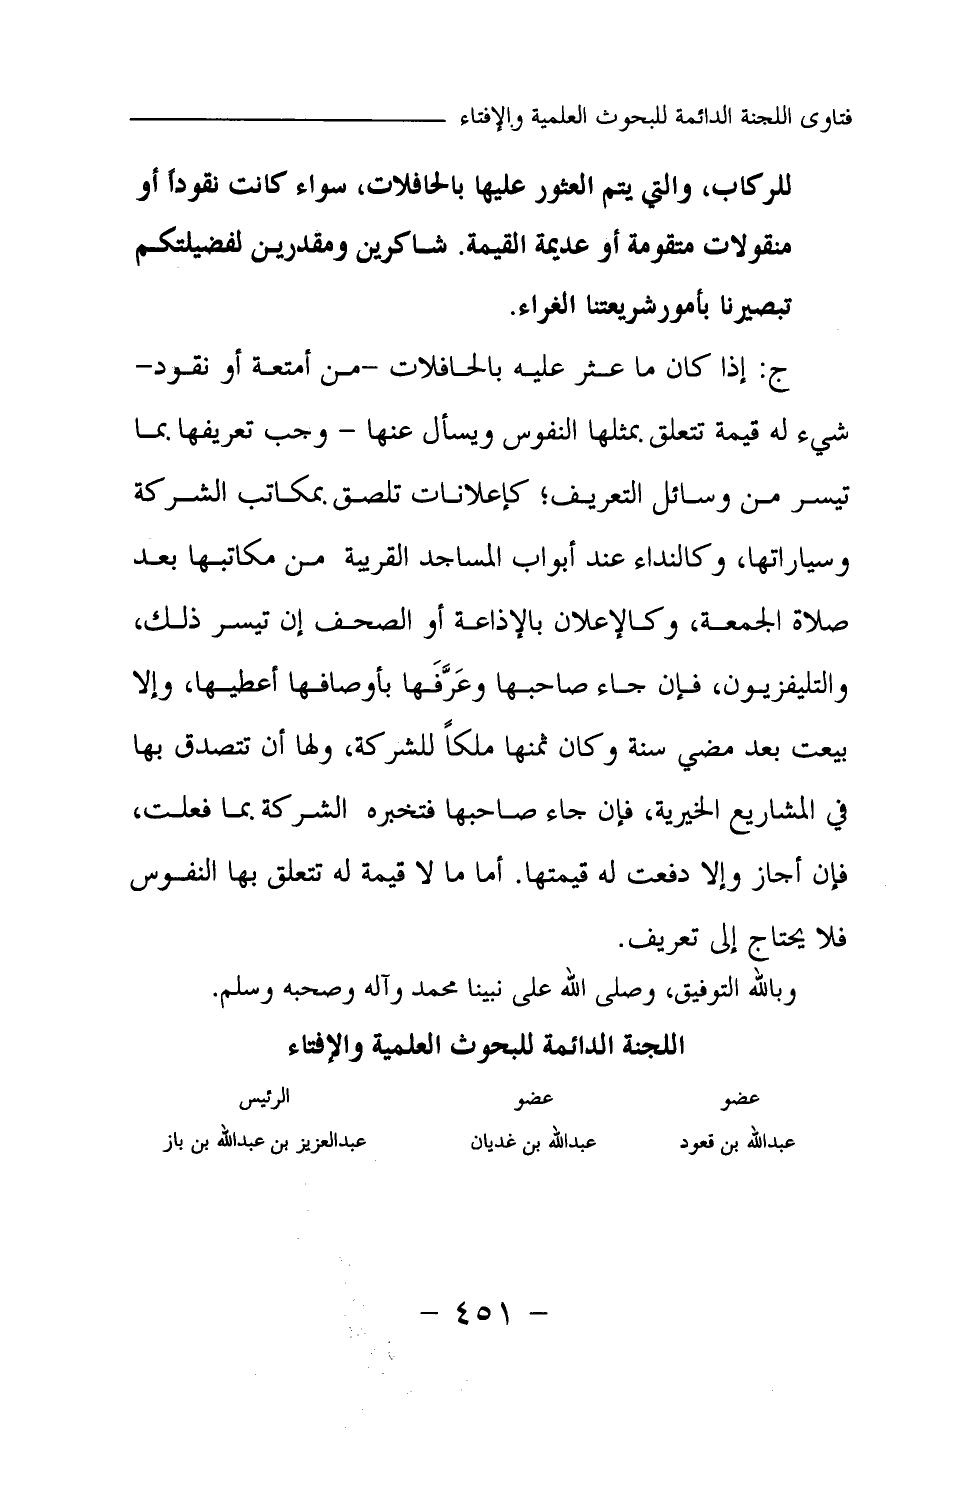 فتاوى اللجنة الدائمة للبحوث العلمية والإفتاء
للركاب، والتي يتم العثور عليها بالحافلات، سواء كانت نقوداً أو
منقولات متقومة أو عديمة القيمة. شاكرين ومقدرين لفضيلتكم
تبصيرنا بأمور شريعتنا الغراء.
ج: إذا كان ما عثر عليه بالحافلات -من أمتعة أو نقود-
شيء له قيمة تتعلق بمثلها النفوس ويسأل عنها - وجب تعريفها بما
تيسر من وسائل التعريف؛ كإعلانات تلصق بمكاتب الشركة
وسياراتها، وكالنداء عند أبواب المساجد القريبة من مكاتبها بعد
صلاة الجمعة، وكالإعلان بالإذاعة أو الصحف إن تيسر ذلك،
والتليفزيون، فإن جاء صاحبها وعَرَّفَها بأوصافها أعطيها، وإلا
بيعت بعد مضي سنة وكان ثمنها ملكاً للشركة، ولها أن تتصدق بها
في المشاريع الخيرية، فإن جاء صاحبها فتخبره الشركة بما فعلت،
فإن أجاز وإلا دفعت له قيمتها. أما ما لا قيمة له تتعلق بها النفوس
فلا يحتاج إلى تعريف.
وبالله التوفيق، وصلى الله على نبينا محمد وآله وصحبه وسلم.
اللجنة الدائمة للبحوث العلمية والإفتاء
عضو عضو الرئيس
عبدالله بن قعود عبدالله بن غديان عبدالعزيز بن عبدالله بن باز
- ٤٥١ -